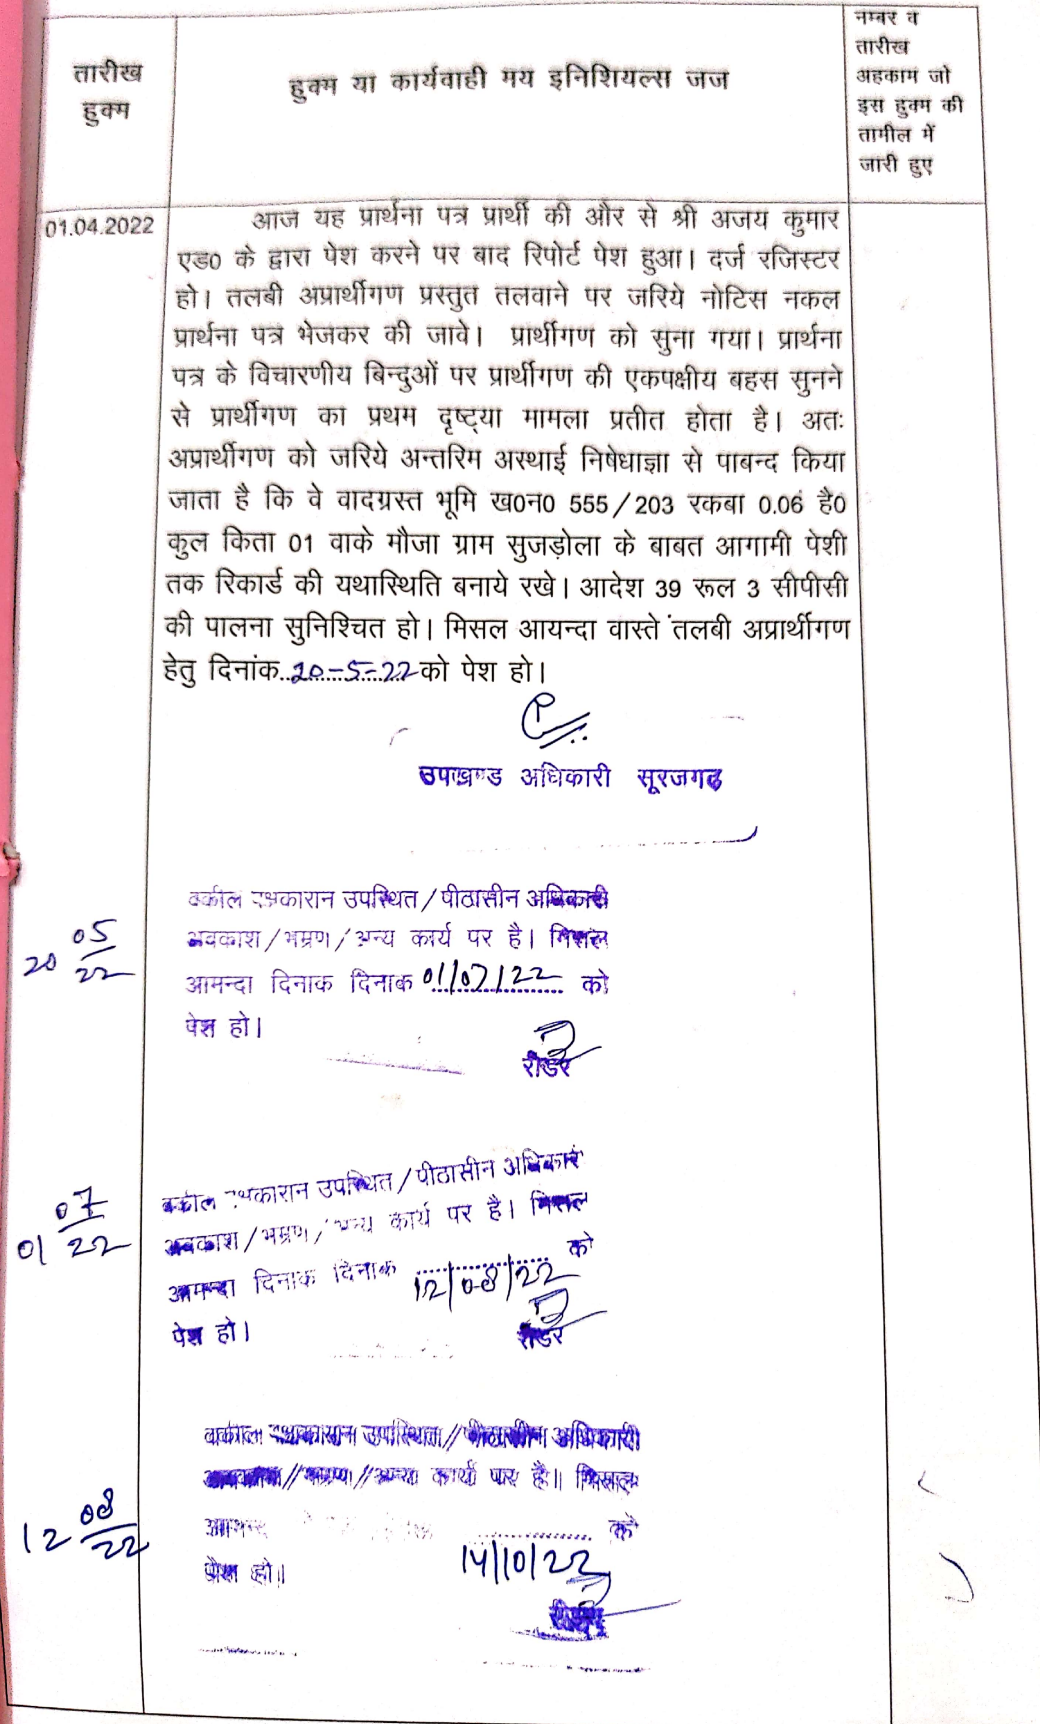 तारीख
हुक्म
हुक्म या कार्यवाही मय इनिशियल्स जज
नम्बर व
तारीख
अहकाम जो
इस हुक्म की
तामील में
जारी हुए
01.04.2022
आज यह प्रार्थना पत्र प्रार्थी की और से श्री अजय कुमार
एड0 के द्वारा पेश करने पर बाद रिपोर्ट पेश हुआ। दर्ज रजिस्टर
हो। तलबी अप्रार्थीगण प्रस्तुत तलवाने पर जरिये नोटिस नकल
प्रार्थना पत्र भेजकर की जावे। प्रार्थीगण को सुना गया। प्रार्थना
पत्र के विचारणीय बिन्दुओं पर प्रार्थीगण की एकपक्षीय बहस सुनने
से प्रार्थीगण का प्रथम दृष्ट्या मामला प्रतीत होता है। अतः
अप्रार्थीगण को जरिये अन्तरिम अस्थाई निषेधाज्ञा से पाबन्द किया
जाता है कि वे वादग्रस्त भूमि ख0न0 555/203 रकबा 0.06 है0
कुल किता 01 वाके मौजा ग्राम सुजड़ोला के बाबत आगामी पेशी
तक रिकार्ड की यथास्थिति बनाये रखे। आदेश 39 रूल 3 सीपीसी
की पालना सुनिश्चित हो। मिसल आयन्दा वास्ते तलबी अप्रार्थीगण
हेतु दिनांक 20-5-22 को पेश हो।
उपखण्ड अधिकारी सूरजगढ़
20 05/22
वकील पक्षकारान उपस्थित/पीठासीन अधिकारी
अवकाश/भम्रण/अन्य कार्य पर है। मिसल
आमन्दा दिनाक दिनाक 01/07/22 को
पेश हो।
रीडर
01 07/22
वकील पक्षकारान उपस्थित/पीठासीन अधिकारी
अवकाश/भम्रण/अन्य कार्य पर है। मिसल
आमन्दा दिनाक दिनाक 12/08/22 को
पेश हो।
रीडर
12 08/22
वकील पक्षकारान उपस्थित/पीठासीन अधिकारी
अवकाश/भम्रण/अन्य कार्य पर है। मिसल
को
14/10/22
पेश हो।
रीडर